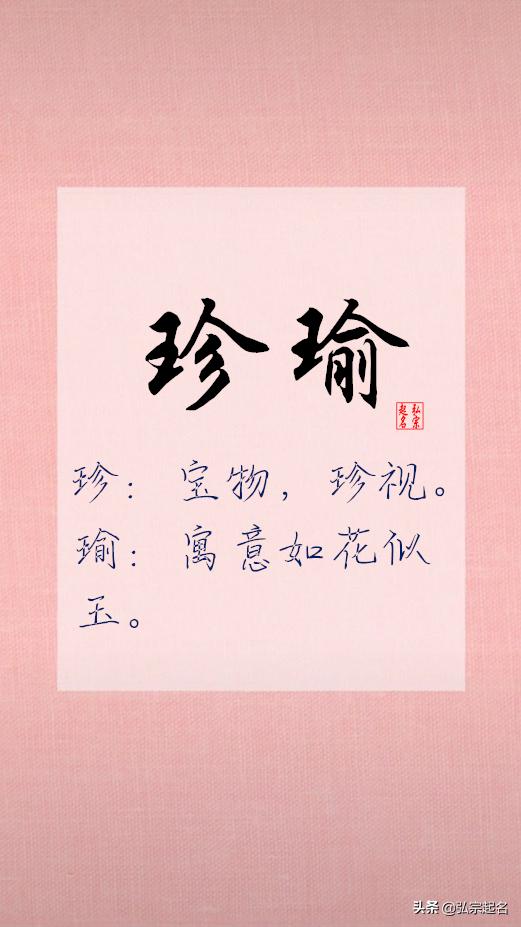 珍瑜
弘宗
起名
珍：宝物，珍视。
瑜：寓意如花似
玉。
头条 @弘宗起名